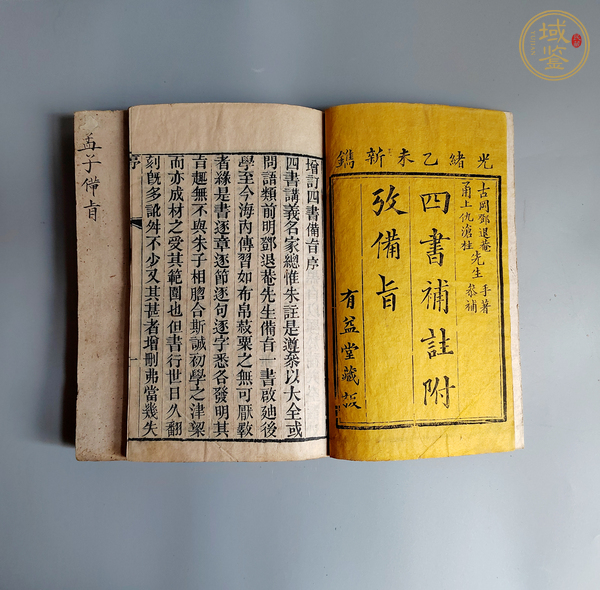 域鉴
光緒乙未新鐫
古岡鄧退菴先生手著
甬上仇滄柱 參補
四書補註附
攷備旨
有益堂藏板
增訂四書備旨序
四書講義名家總惟朱註是遵叅以大全或
問語類前明鄧退菴先生備旨一書啟廸後
學至今海內傳習如布帛菽粟之無可厭斁
者緣是書逐章逐節逐句逐字悉各發明其
旨趣無不與朱子相脗合斯誠初學之津梁
而亦成材之受其範圍也但書行世日久翻
刻旣多訛舛不少又其甚者增刪弗當幾失
序
孟子備旨